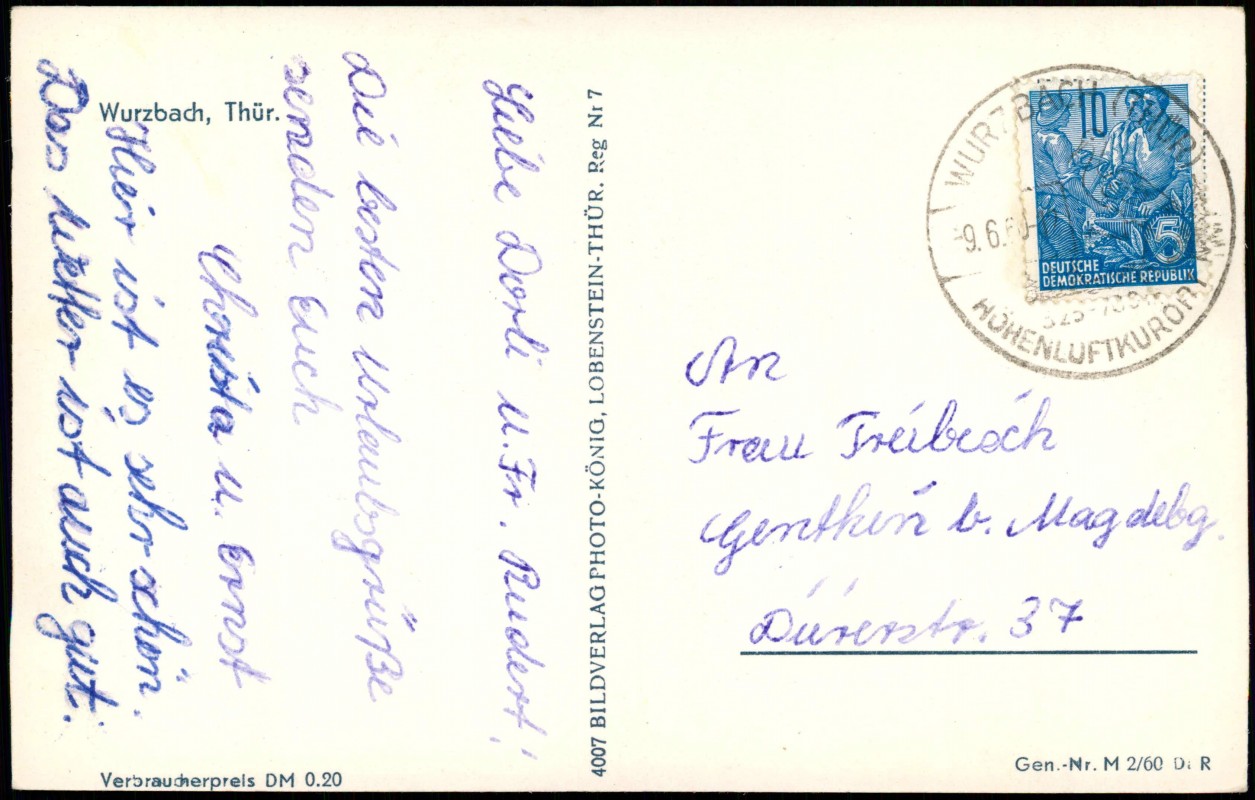 Wurzbach, Thür.
Liebe Dorli u. Fr. Rudert!
Die besten Urlaubsgrüße
senden Euch
Christa u. Ernst
Hier ist es sehr schön.
Das Wetter ist auch gut.
Verbraucherpreis DM 0.20
4007 BILDVERLAG PHOTO-KÖNIG, LOBENSTEIN-THÜR. Reg Nr 7
WURZBACH (THÜR)
9.6.60
HÖHENLUFTKURORT
10
5
DEUTSCHE
DEMOKRATISCHE REPUBLIK
An
Frau
Genthin b. Magdebg.
Dürerstr. 37
Gen.-Nr. M 2/60 D. R